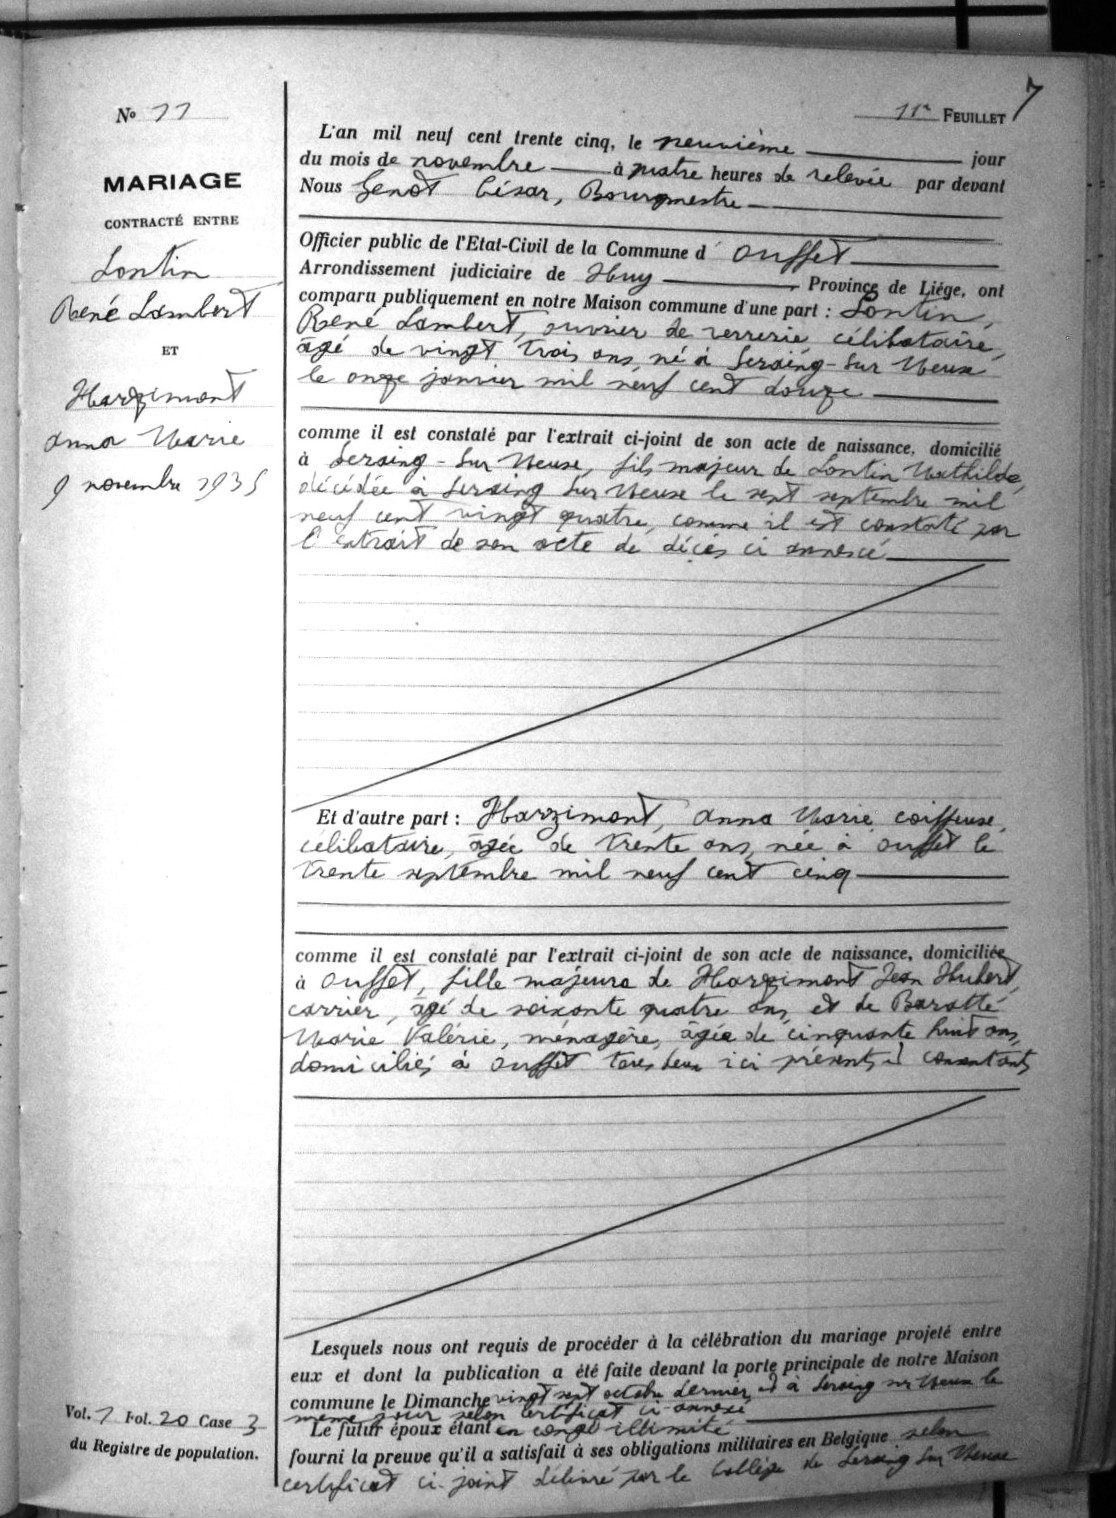 7
No 11
11e FEUILLET
MARIAGE
CONTRACTÉ ENTRE
Lontin
René Lambert
ET
Harzimont
Anna Marie
9 novembre 1935
L'an mil neuf cent trente cinq, le neuvième jour
du mois de novembre à quatre heures de relevée par devant
Nous Genot César, Bourgmestre
Officier public de l'Etat-Civil de la Commune d' Ouffet
Arrondissement judiciaire de Huy, Province de Liége, ont
comparu publiquement en notre Maison commune d'une part : Lontin,
René Lambert, ouvrier de verrerie, célibataire,
âgé de vingt trois ans, né à Seraing-Sur Meuse
le onze janvier mil neuf cent douze
comme il est constaté par l'extrait ci-joint de son acte de naissance, domicilié
à Seraing-Sur Meuse, fils majeur de Lontin Mathilde,
décédée à Seraing Sur Meuse le sept septembre mil
neuf cent vingt quatre, comme il est constaté par
l'extrait de son acte de décès ci annexé
Et d'autre part : Harzimont, Anna Marie, coiffeuse,
célibataire, âgée de trente ans, née à Ouffet le
trente septembre mil neuf cent cinq
comme il est constaté par l'extrait ci-joint de son acte de naissance, domiciliée
à Ouffet, fille majeure de Harzimont Jean Hubert,
carrier, âgé de soixante quatre ans, et de Baratté
Marie Valérie, ménagère, âgée de cinquante huit ans,
domiciliés à Ouffet tous deux ici présents et consentants
Lesquels nous ont requis de procéder à la célébration du mariage projeté entre
eux et dont la publication a été faite devant la porte principale de notre Maison
commune le Dimanche vingt sept octobre dernier et à Seraing sur Meuse le
même jour selon certificat ci-annexé
Le futur époux étant en congé illimité
fourni la preuve qu'il a satisfait à ses obligations militaires en Belgique selon
certificat ci-joint délivré par le Collège de Seraing Sur Meuse
Vol. 7 Fol. 20 Case 3
du Registre de population.